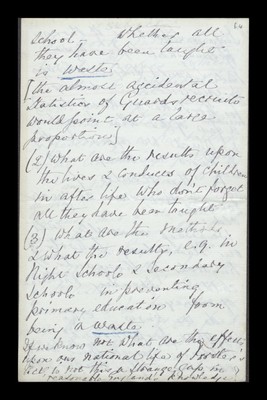 School - Whether all
they have been taught
is waste
[the almost accidental
statistics of Guards recruits
would point at a large
proportion]
(2) What are the results upon
the lives & conduct of children
in after life who don't forget
all they have been taught
(3) What are the methods
& what the results, e.g. in
Night Schools & Secondary
Schools in preventing
primary education from
being a waste
If we know not what are the effects
upon our national life of Forster's
Act is not this a strange gap in
reasonable England's knowledge